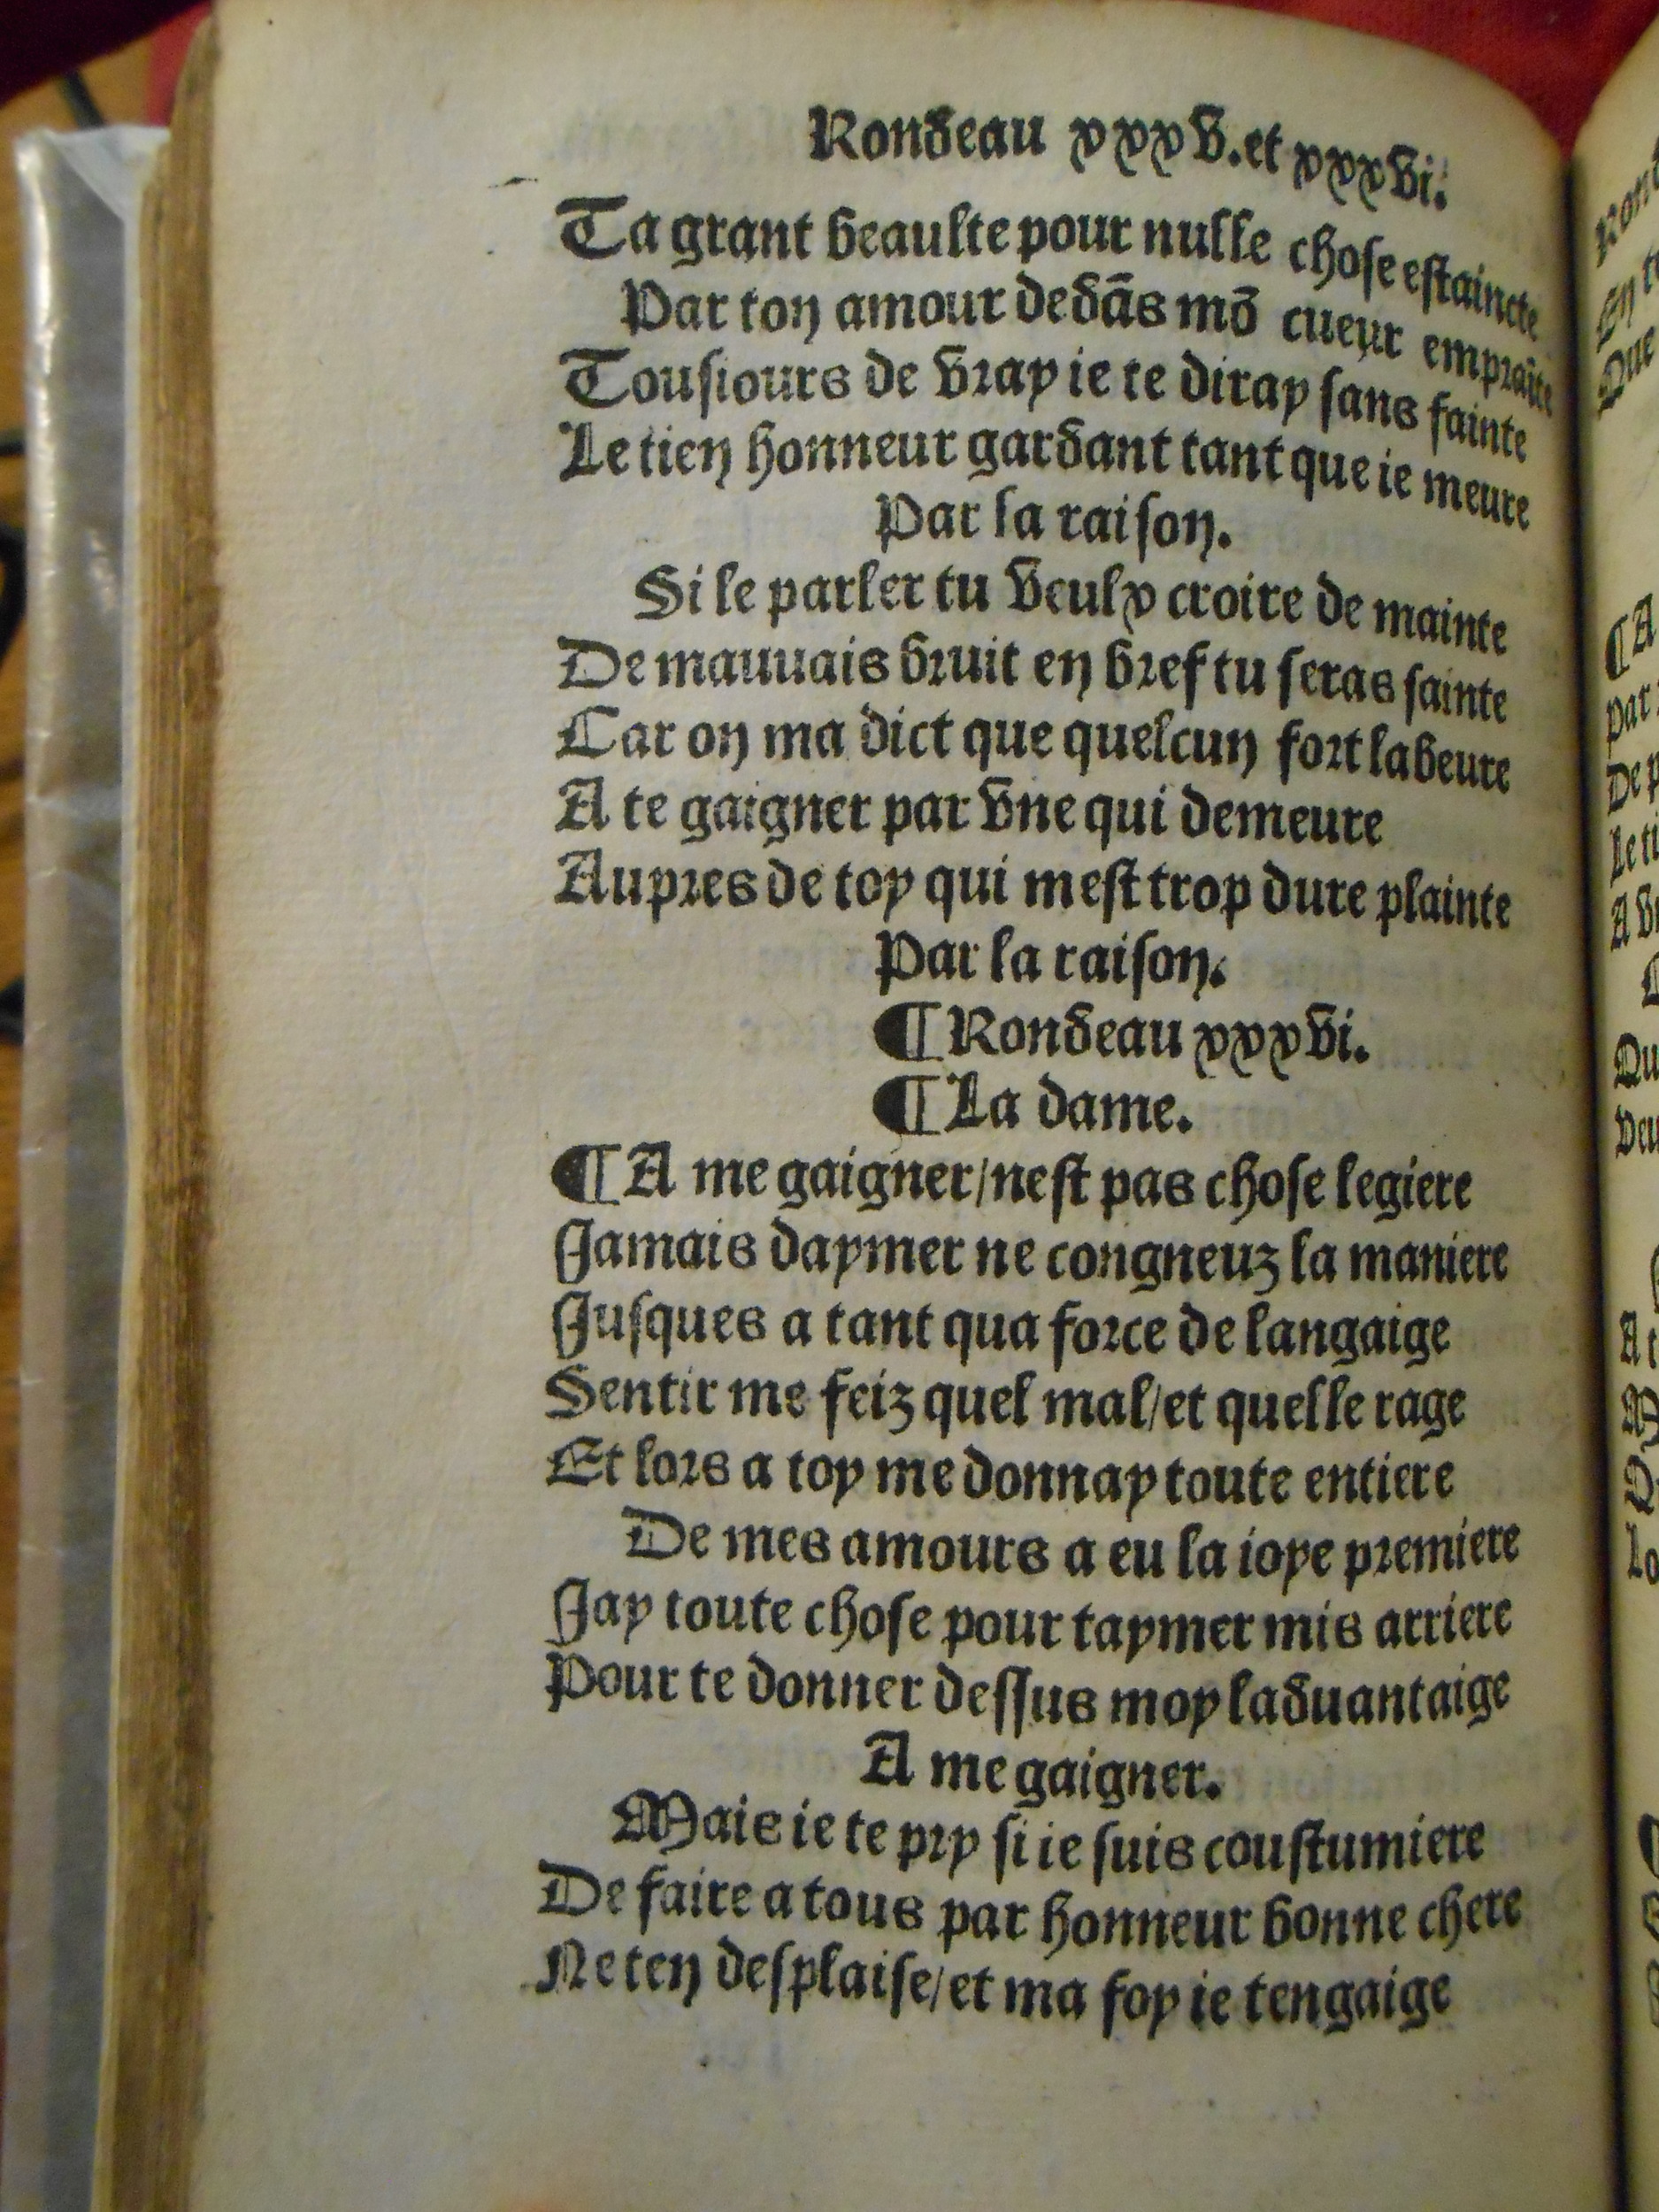 Rondeau xxxv. et xxxvi.
Ta grant beaulte pour nulle chose estaincte
Par ton amour dedãs mõ cueur empraĩte
Tousiours de vray ie te diray sans fainte
Le tien honneur gardant tant que ie meure
Par la raison.
Si le parler tu veulx croire de mainte
De mauuais bruit en bref tu seras sainte
Car on ma dict que quelcun fort labeure
A te gaigner par vne qui demeure
Aupres de toy qui mest trop dure plainte
Par la raison.
¶ Rondeau xxxvi.
¶ La dame.
¶ A me gaigner/nest pas chose legiere
Jamais daymer ne congneuz la maniere
Jusques a tant qua force de langaige
Sentir me feiz quel mal/et quelle rage
Et lors a toy me donnay toute entiere
De mes amours a eu la ioye premiere
Jay toute chose pour taymer mis arriere
Pour te donner dessus moy laduantaige
A me gaigner.
Mais ie te pry si ie suis coustumiere
De faire a tous par honneur bonne chere
Ne ten desplaise/et ma foy ie tengaige